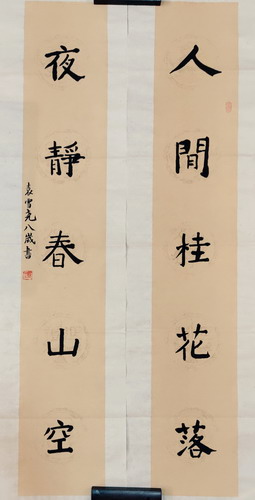 人間桂花落
夜靜春山空
袁雪元八歲書